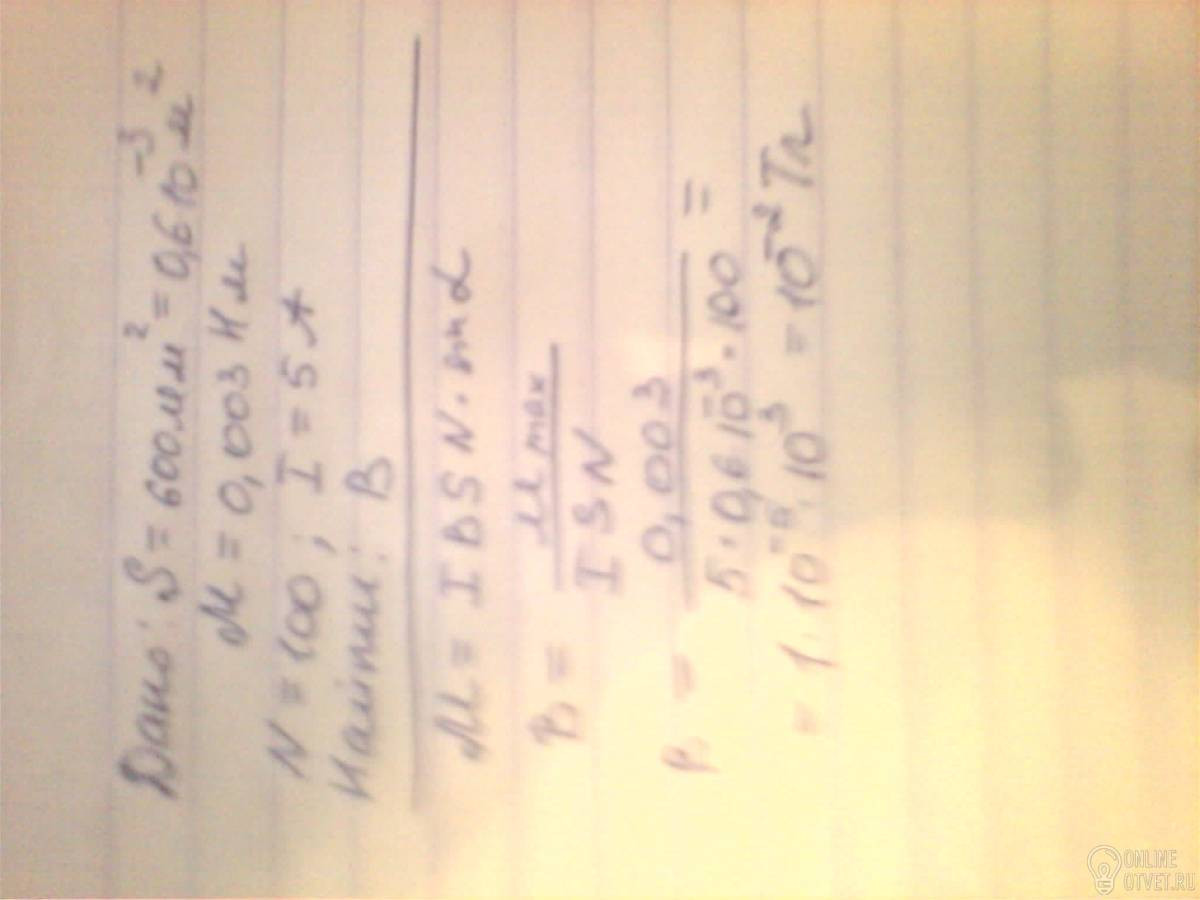 Дано: S = 600 мм² = 0,6 10⁻³ м²
M = 0,003 Н м
N = 100 ; I = 5 А
Найти: B
M = I B S N · sin α
B = M max / I S N
B = 0,003 / 5 · 0,6 10⁻³ · 100 =
= 1 · 10⁻⁵ · 10³ = 10⁻² Тл
ONLINE
OTVET.RU